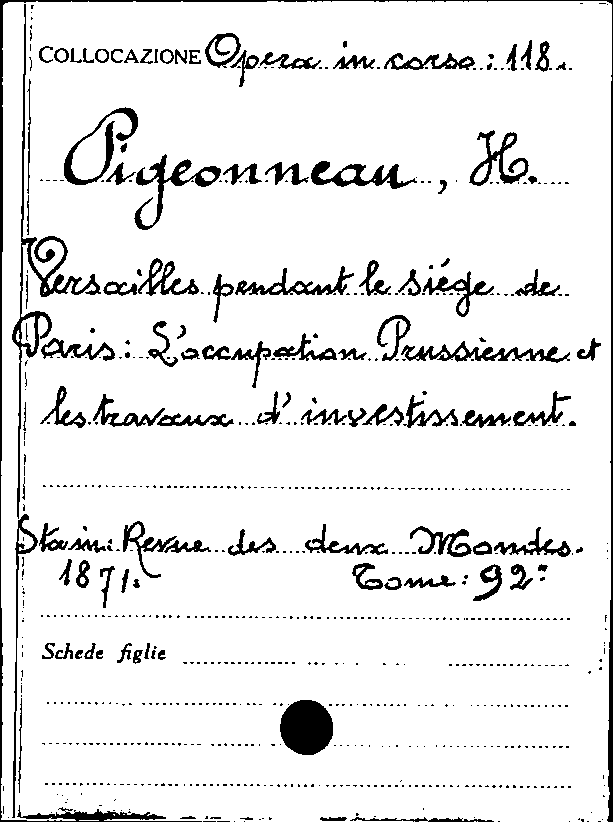 COLLOCAZIONE Opera in corso: 118.
Pigeonneau, H.
Versailles pendant le siége de
Paris: L'occupation Prussienne et
les travaux d'investissement.
Sta in: Revue des deux Mondes.
1871. Tome: 92º
Schede figlie